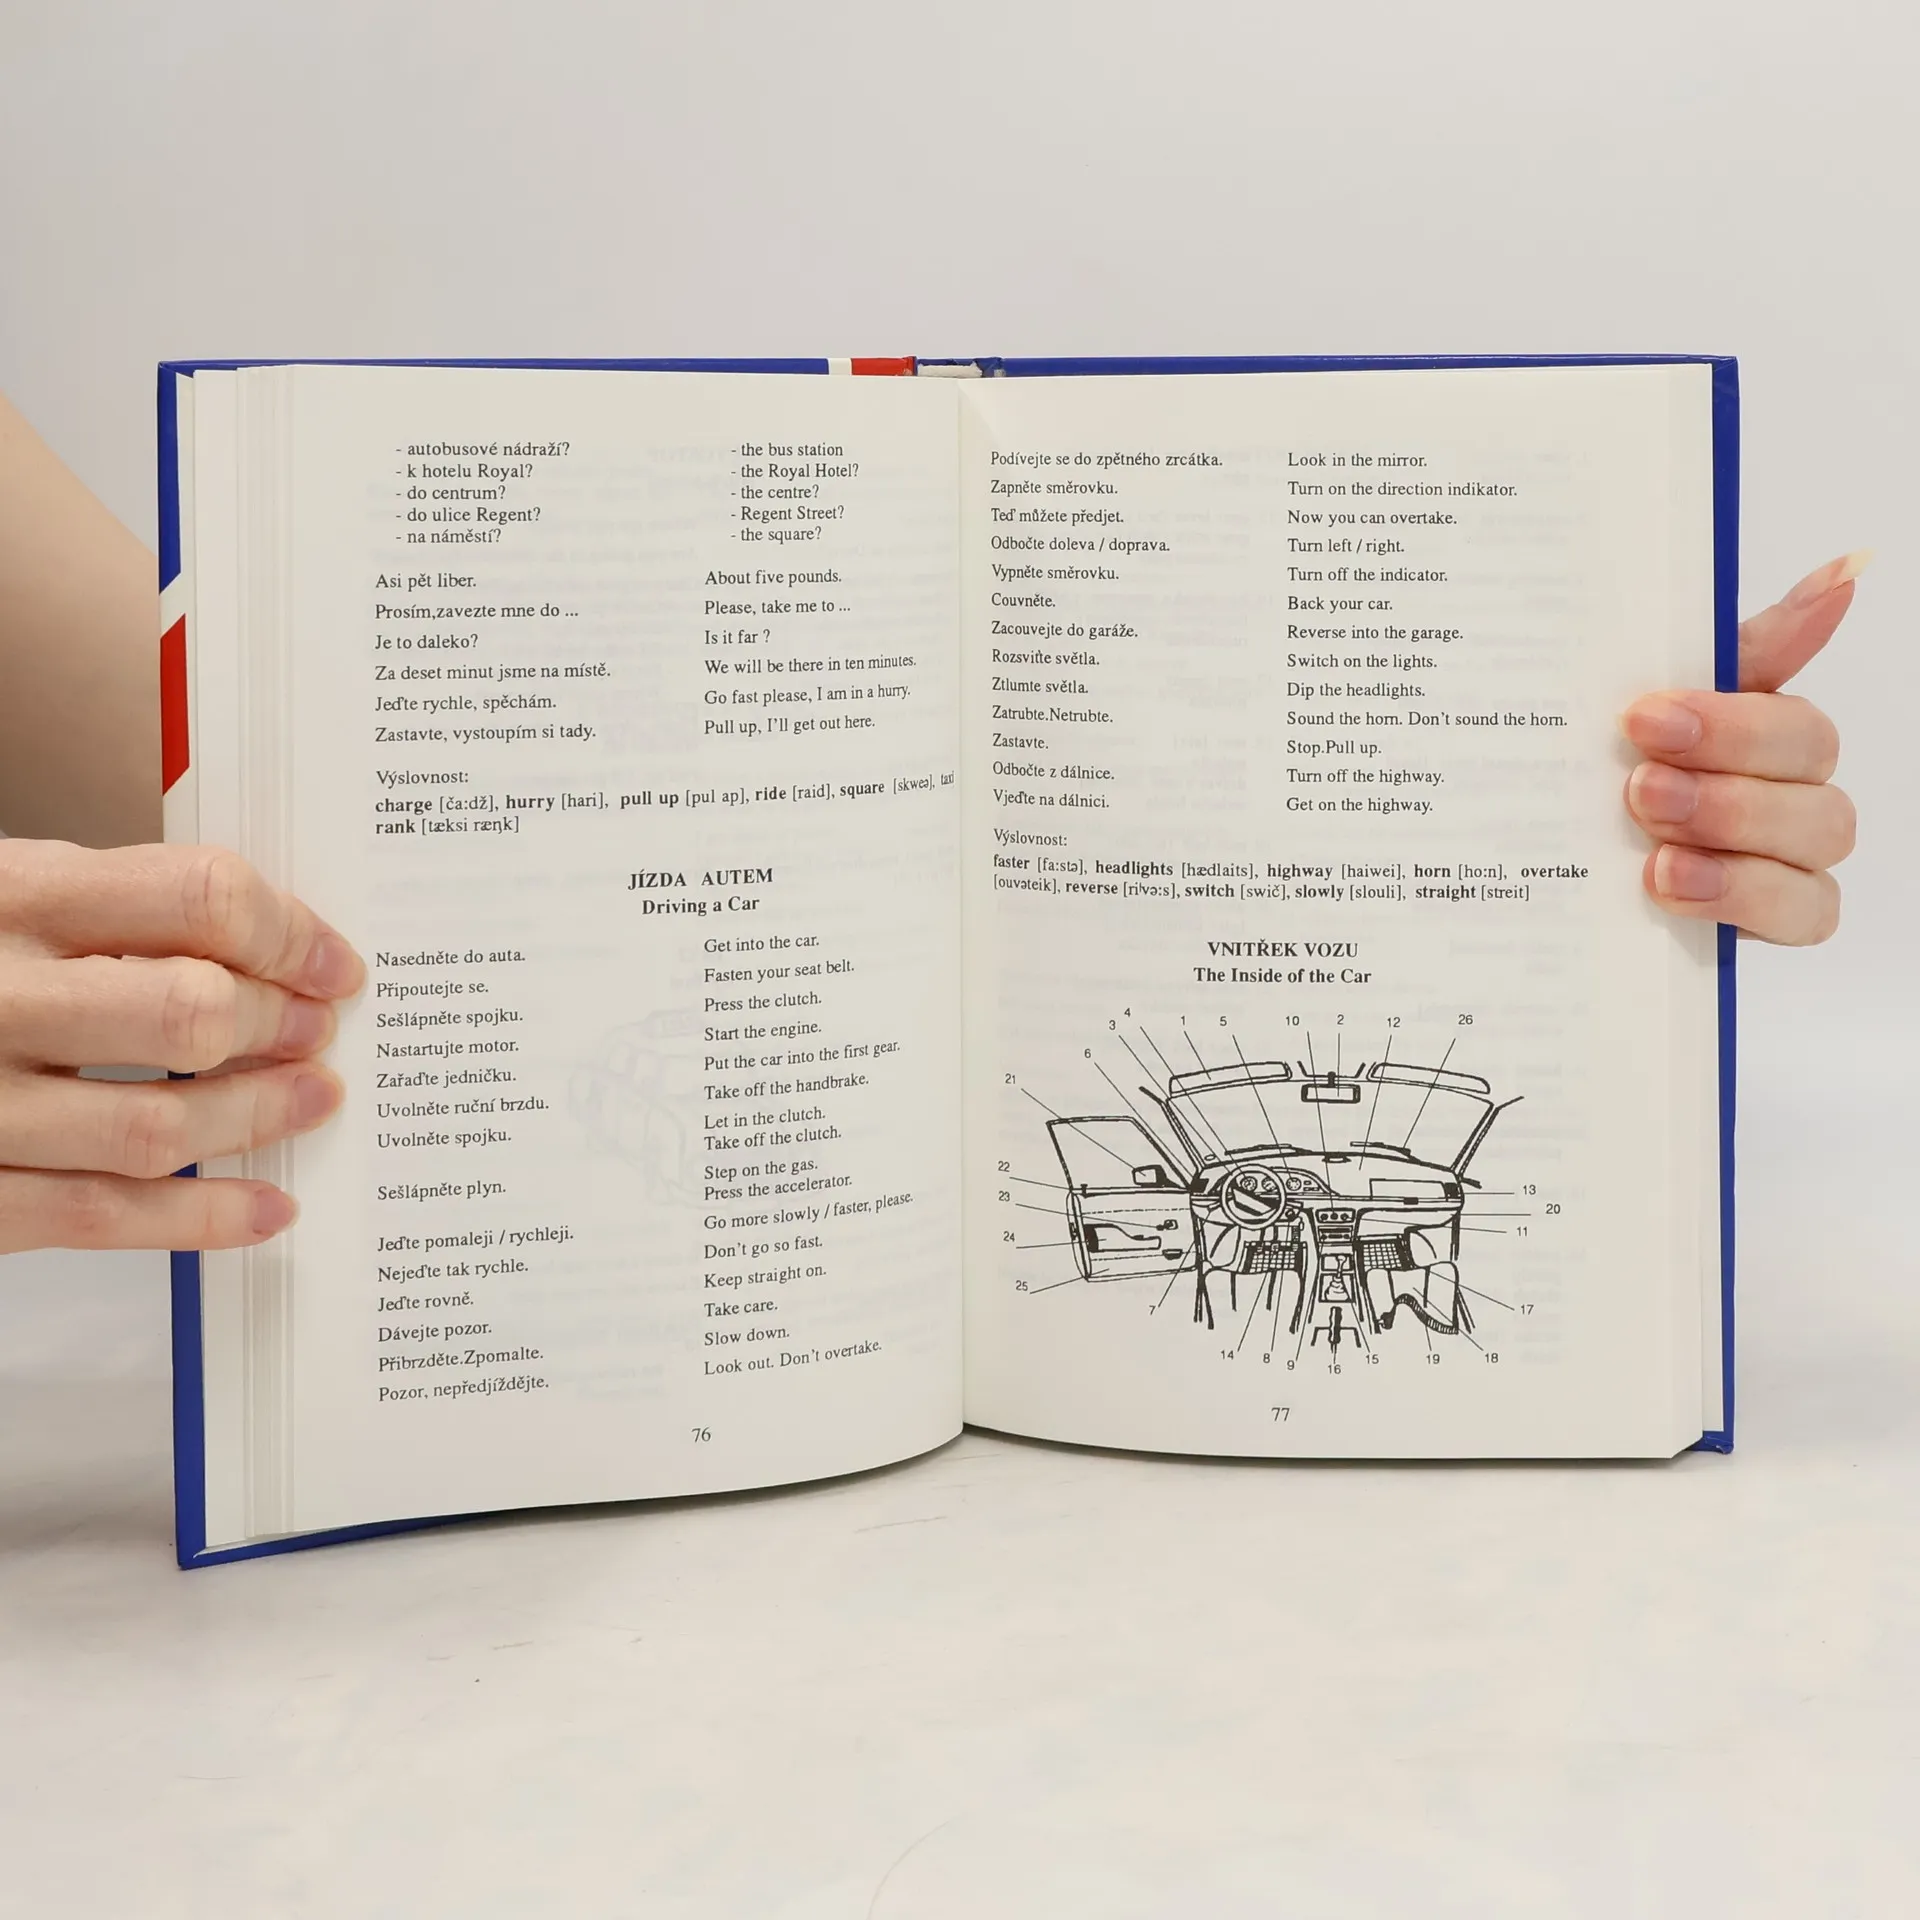 - autobusové nádraží? - the bus station
- k hotelu Royal? - the Royal Hotel?
- do centrum? - the centre?
- do ulice Regent? - Regent Street?
- na náměstí? - the square?
Asi pět liber. About five pounds.
Prosím,zavezte mne do ... Please, take me to ...
Je to daleko? Is it far ?
Za deset minut jsme na místě. We will be there in ten minutes.
Jeďte rychle, spěchám. Go fast please, I am in a hurry.
Zastavte, vystoupím si tady. Pull up, I'll get out here.
Výslovnost:
charge [ča:dž], hurry [hari], pull up [pul ap], ride [raid], square [skweə], taxi
rank [tæksi ræŋk]
JÍZDA AUTEM
Driving a Car
Nasedněte do auta. Get into the car.
Připoutejte se. Fasten your seat belt.
Sešlápněte spojku. Press the clutch.
Nastartujte motor. Start the engine.
Zařaďte jedničku. Put the car into the first gear.
Uvolněte ruční brzdu. Take off the handbrake.
Uvolněte spojku. Let in the clutch.
Take off the clutch.
Sešlápněte plyn. Step on the gas.
Press the accelerator.
Jeďte pomaleji / rychleji. Go more slowly / faster, please.
Nejeďte tak rychle. Don't go so fast.
Jeďte rovně. Keep straight on.
Dávejte pozor. Take care.
Přibrzděte.Zpomalte. Slow down.
Pozor, nepředjíždějte. Look out. Don't overtake.
76
Podívejte se do zpětného zrcátka. Look in the mirror.
Zapněte směrovku. Turn on the direction indikator.
Teď můžete předjet. Now you can overtake.
Odbočte doleva / doprava. Turn left / right.
Vypněte směrovku. Turn off the indicator.
Couvněte. Back your car.
Zacouvejte do garáže. Reverse into the garage.
Rozsviťte světla. Switch on the lights.
Ztlumte světla. Dip the headlights.
Zatrubte.Netrubte. Sound the horn. Don't sound the horn.
Zastavte. Stop.Pull up.
Odbočte z dálnice. Turn off the highway.
Vjeďte na dálnici. Get on the highway.
Výslovnost:
faster [fa:stə], headlights [hædlaits], highway [haiwei], horn [ho:n], overtake
[ouvəteik], reverse [ri'və:s], switch [swič], slowly [slouli], straight [streit]
VNITŘEK VOZU
The Inside of the Car
4
3 1 5 10 2 12 26
6
21
22
23
24
25
13
20
11
7
17
14 8 9 16 15 19 18
77